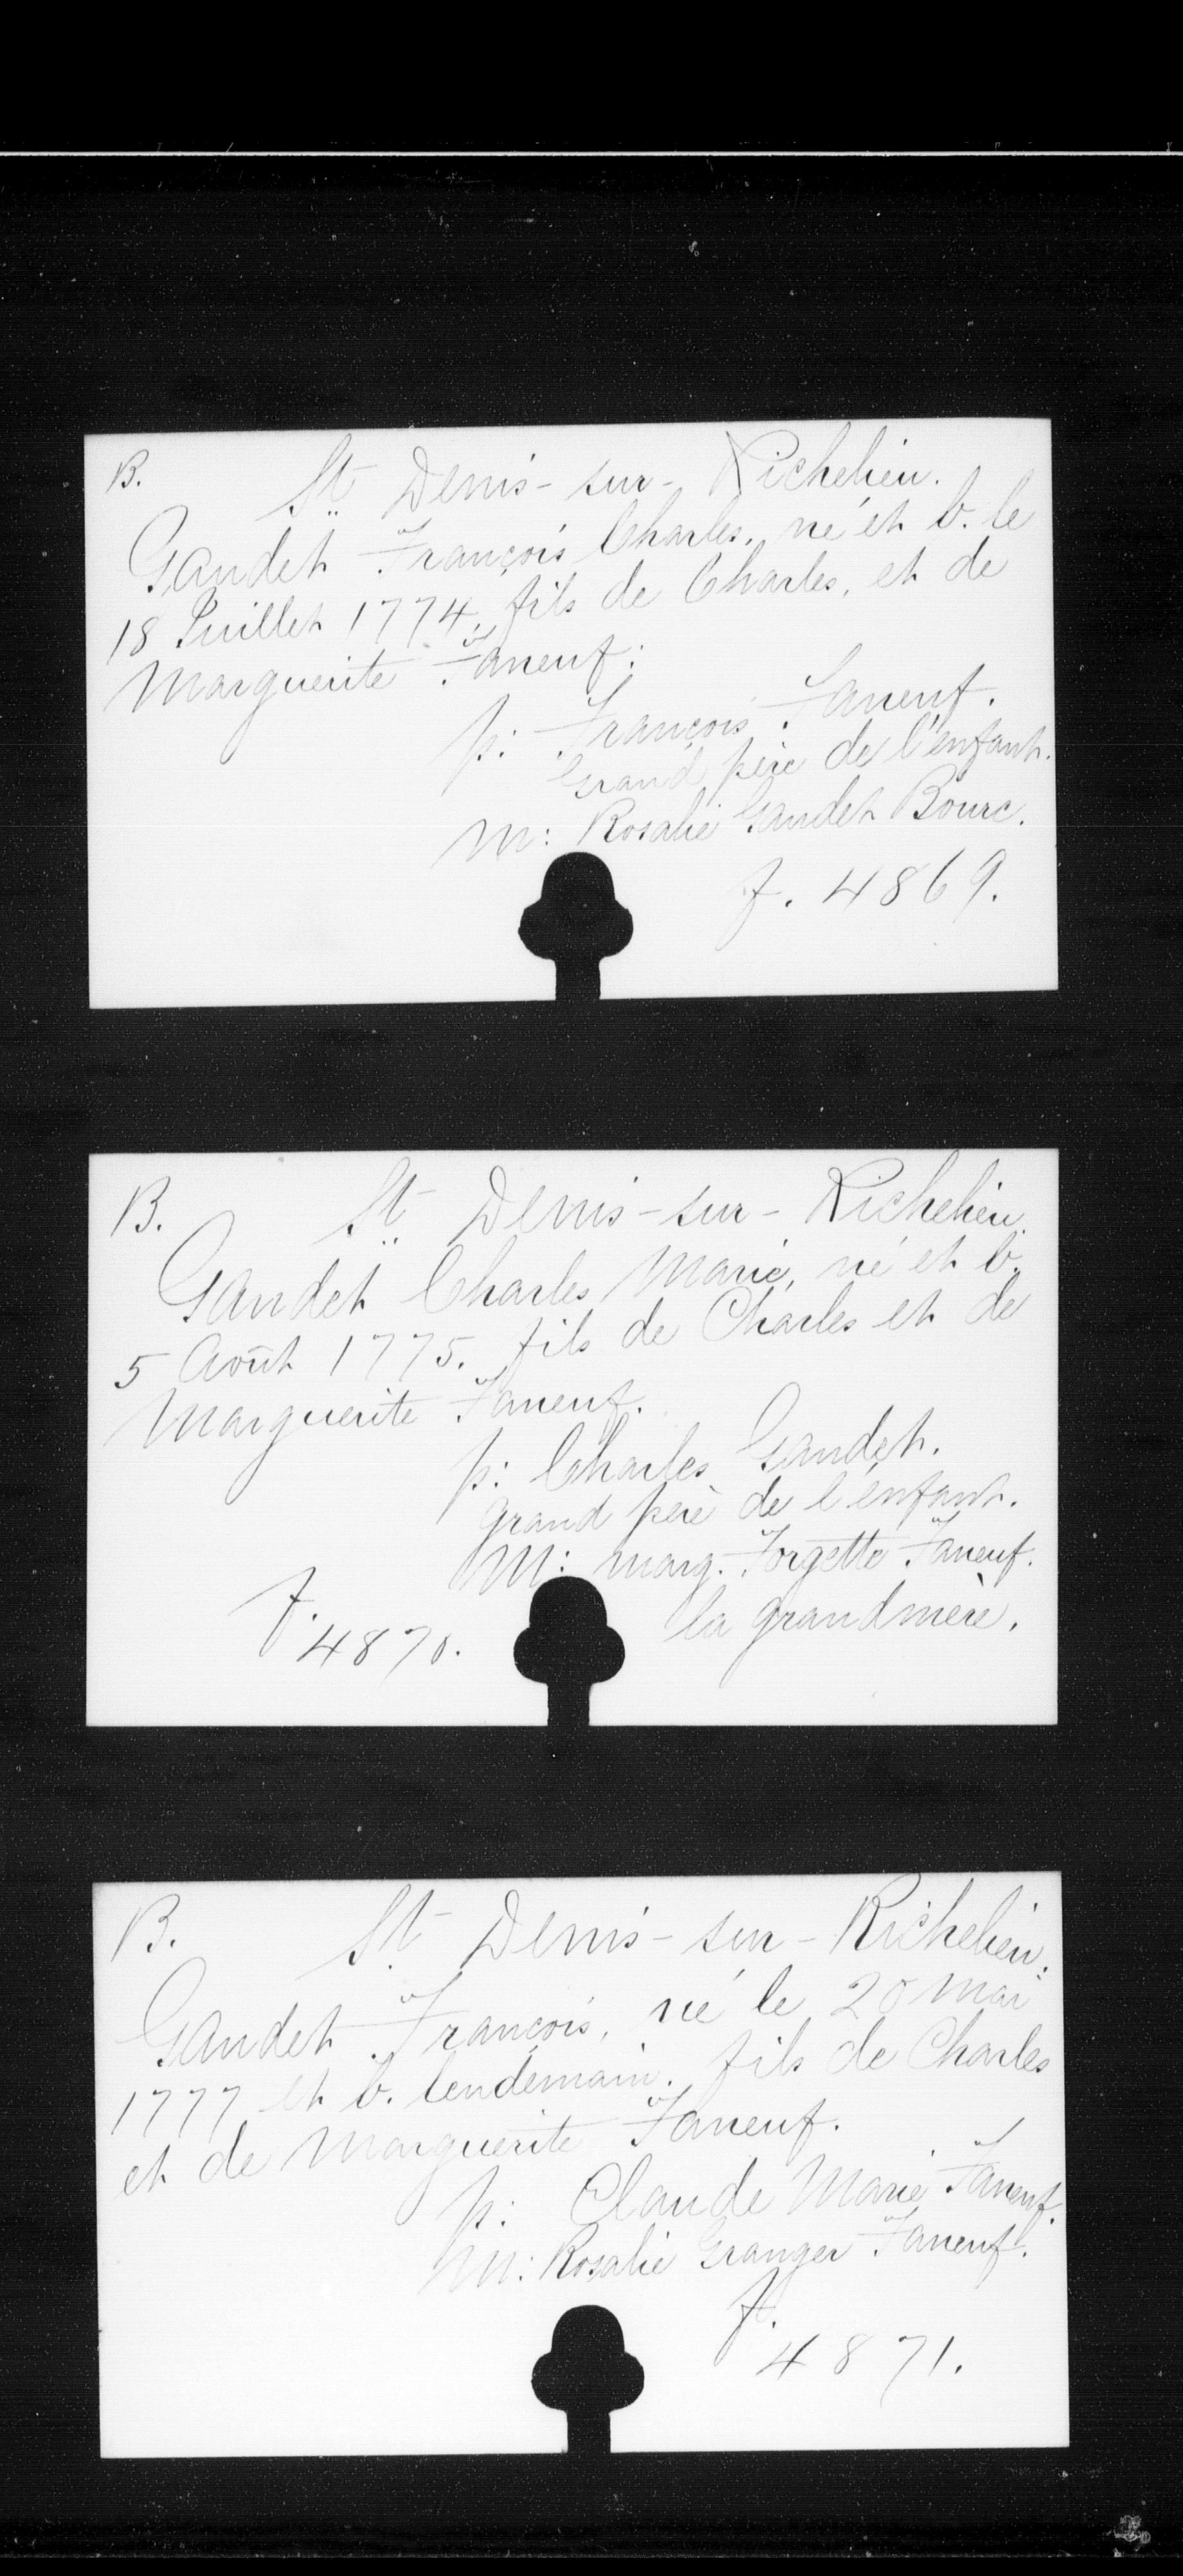 B. St Denis-sur-Richelieu.
Gaudet François Charles, né et b. le
18 Juillet 1774, fils de Charles, et de
Marguerite Faneuf:
p: François Faneuf.
Grand père de l'enfant.
M: Rosalie Gaudet Bourc.
f. 4869.
B. St Denis-sur-Richelieu.
Gaudet Charles Marie, né et b.
5 Août 1775. fils de Charles et de
Marguerite Faneuf.
p: Charles Gaudet.
grand père de l'enfant.
M: Marg. Forgette Faneuf.
la grandmère.
f. 4870.
B. St Denis-sur-Richelieu.
Gaudet François, né le 20 Mai
1777 et b. lendemain. fils de Charles
et de Marguerite Faneuf.
p: Claude Marie Faneuf.
M: Rosalie Granger Faneuf.
f.
4871.